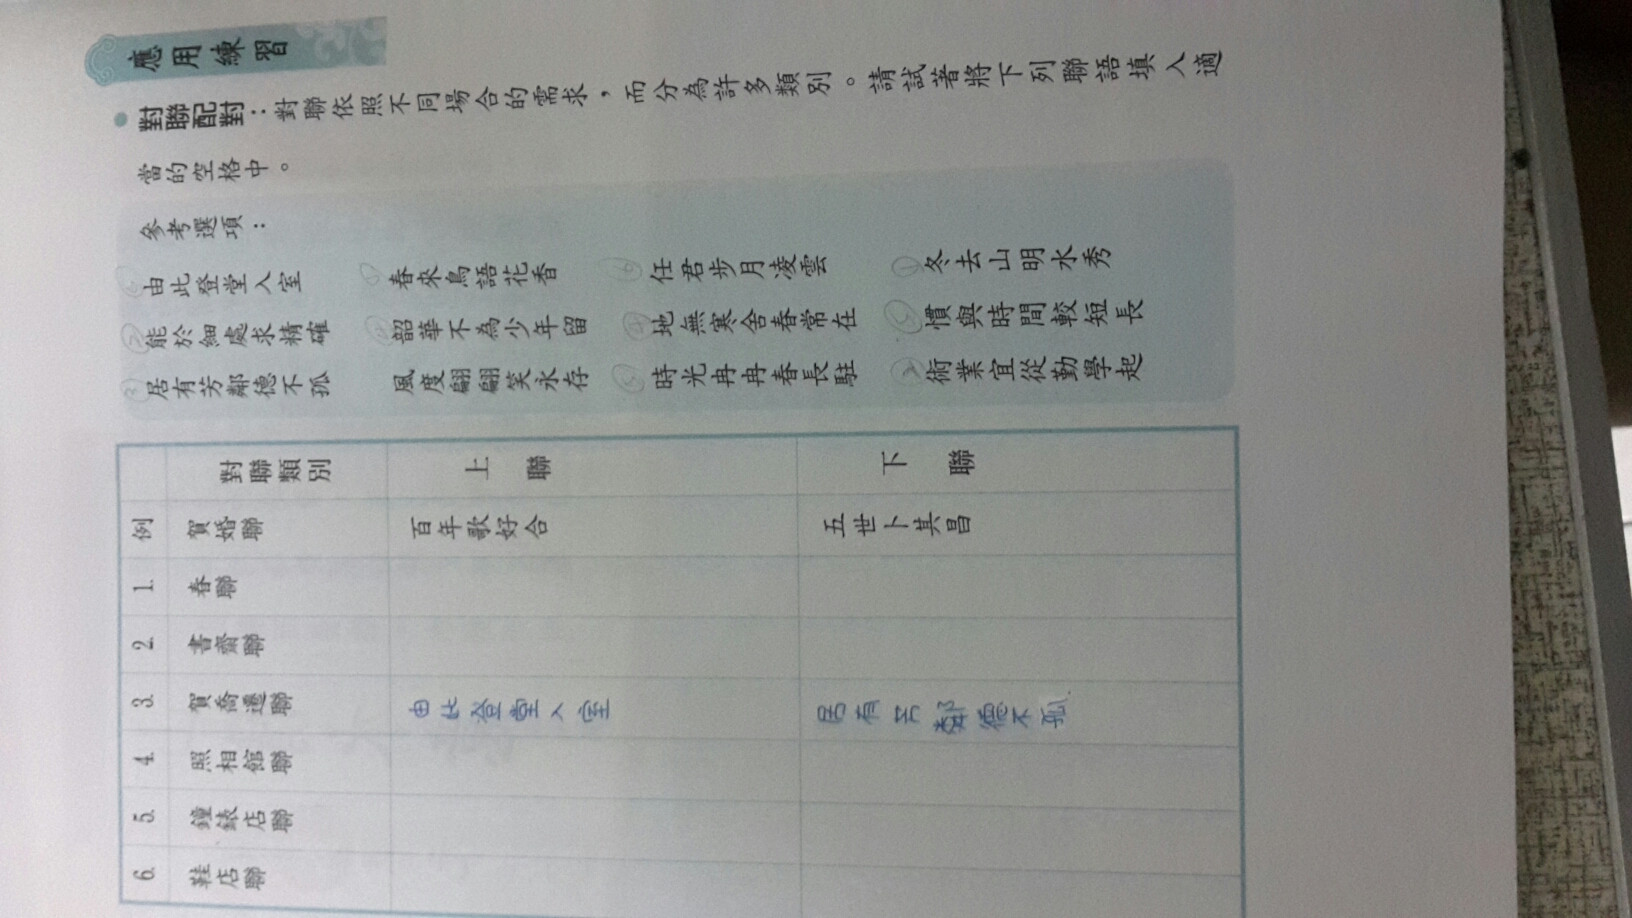 應用練習
對聯配對：對聯依照不同場合的需求，而分為許多類別。請試著將下列聯語填入適
當的空格中。
參考選項：
由此登堂入室 春來鳥語花香 任君步月凌雲 冬去山明水秀
能於細處求精確 韶華不為少年留 地無寒舍春常在 慣與時間較短長
居有芳鄰德不孤 風度翩翩笑永存 時光冉冉春長駐 術業宜從勤學起
對聯類別 上聯 下聯
例 賀婚聯 百年歌好合 五世卜其昌
1. 春聯
2. 書齋聯
3. 賀喬遷聯 由此登堂入室 居有芳鄰德不孤
4. 照相館聯
5. 鐘錶店聯
6. 鞋店聯